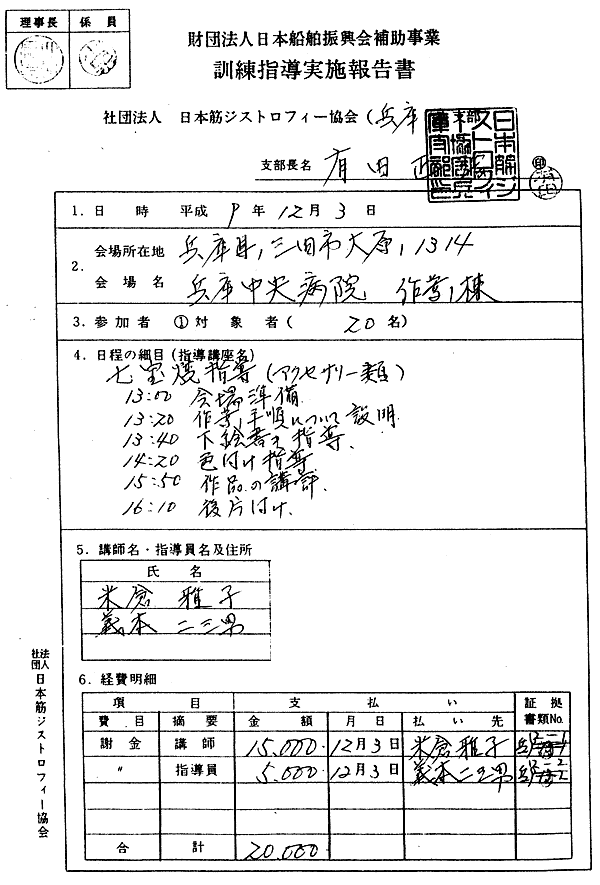 理事長 係員
財団法人日本船舶振興会補助事業
訓練指導実施報告書
社団法人 日本筋ジストロフィー協会(兵庫 支部
支部長名 有田
1.日 時 平成 9 年 12 月 3 日
2. 会場所在地 兵庫県,三田市大原,1314
会場名 兵庫中央病院 作業棟
3.参加者 ①対象者( 20名)
4.日程の細目(指導講座名)
七宝焼指導(アクセサリー類)
13:00 会場準備
13:20 作業手順について説明
13:40 下絵書き指導、
14:20 色付け指導
15:50 作品の講評
16:10 後片付け、
5.講師名・指導員名及住所
氏 名
米倉 雅子
本 二三男
6.経費明細
項 目 支 払 い 証拠書類No.
費目 摘要 金額 月日 払い先
謝金 講師 15,000 12月3日 米倉雅子
〃 指導員 5,000 12月3日 本二三男
合 計 20,000
社団法人 日本筋ジストロフィー協会